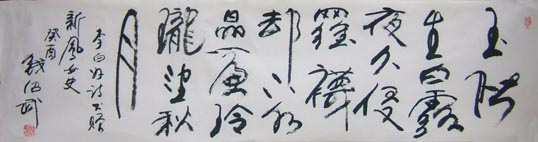 玉階
生白露
夜久侵
羅襪
却下水
晶廉玲
瓏望秋
月
李白好詩書贈
新鳳女史
癸酉
錢紹武